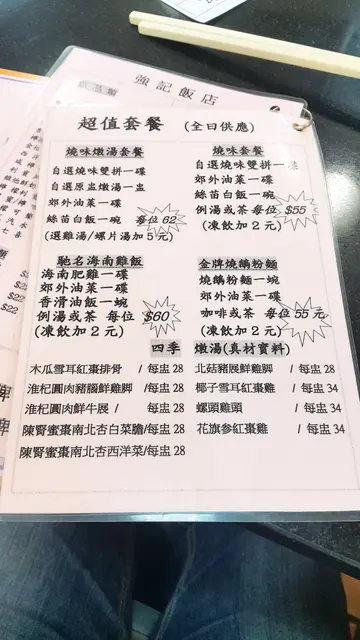 強記飯店
超值套餐 (全日供應)
燒味燉湯套餐
自選燒味雙拼一碟
自選原盅燉湯一盅
郊外油菜一碟
絲苗白飯一碗 每位 62
(選雞湯/螺片湯加5元)
燒味套餐
自選燒味雙拼一碟
郊外油菜一碟
絲苗白飯一碗
例湯或茶 每位 $55
(凍飲加 2 元)
馳名海南雞飯
海南肥雞一碟
郊外油菜一碟
香滑油飯一碗
例湯或茶 每位 $60
(凍飲加 2 元)
金牌燒鵝粉麵
燒鵝粉麵一碗
郊外油菜一碟
咖啡或茶 每位 55 元
(凍飲加 2 元)
四季 燉湯(真材實料)
木瓜雪耳紅棗排骨 / 每盅 28
淮杞圓肉豬腦鮮雞腳 / 每盅 28
淮杞圓肉鮮牛展 / 每盅 28
陳腎蜜棗南北杏白菜膽/ 每盅 28
陳腎蜜棗南北杏西洋菜/ 每盅 28
北菇豬展鮮雞腳 / 每盅 28
椰子雪耳紅棗雞 / 每盅 34
螺頭雞頭 / 每盅 34
花旗參紅棗雞 / 每盅 34
$22
$22